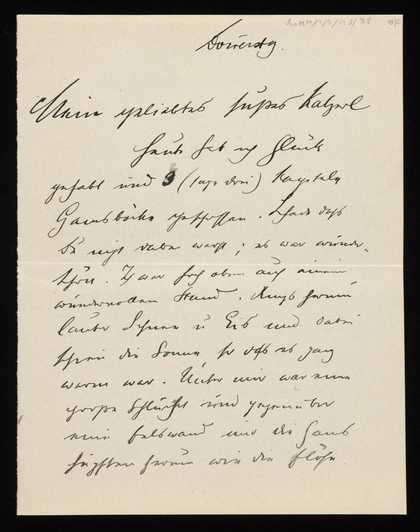 Donnerstg.
Mein geliebtes süßes Katzerl
Heute hab ich Glück
gehabt und 3 (sage drei) Kapitale
Gamsböcke geschossen. Schade daß
Du nicht dabei warst; es war wunder-
schön. Ich war hoch oben auf einem
wundervollen Stand. Rings herum
lauter Schnee u Eis und dabei
schien die Sonne so daß es ganz
warm war. Unter mir war eine
große Schlucht und gegenüber
eine Felswand und die Gams
hüpften herum wie die Flöhe